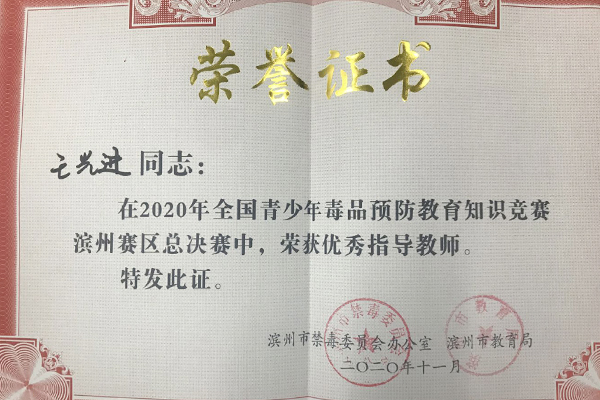 荣誉证书
同志：
在2020年全国青少年毒品预防教育知识竞赛
滨州赛区总决赛中，荣获优秀指导教师。
特发此证。
滨州市禁毒委员会办公室 滨州市教育局
二〇二〇年十一月